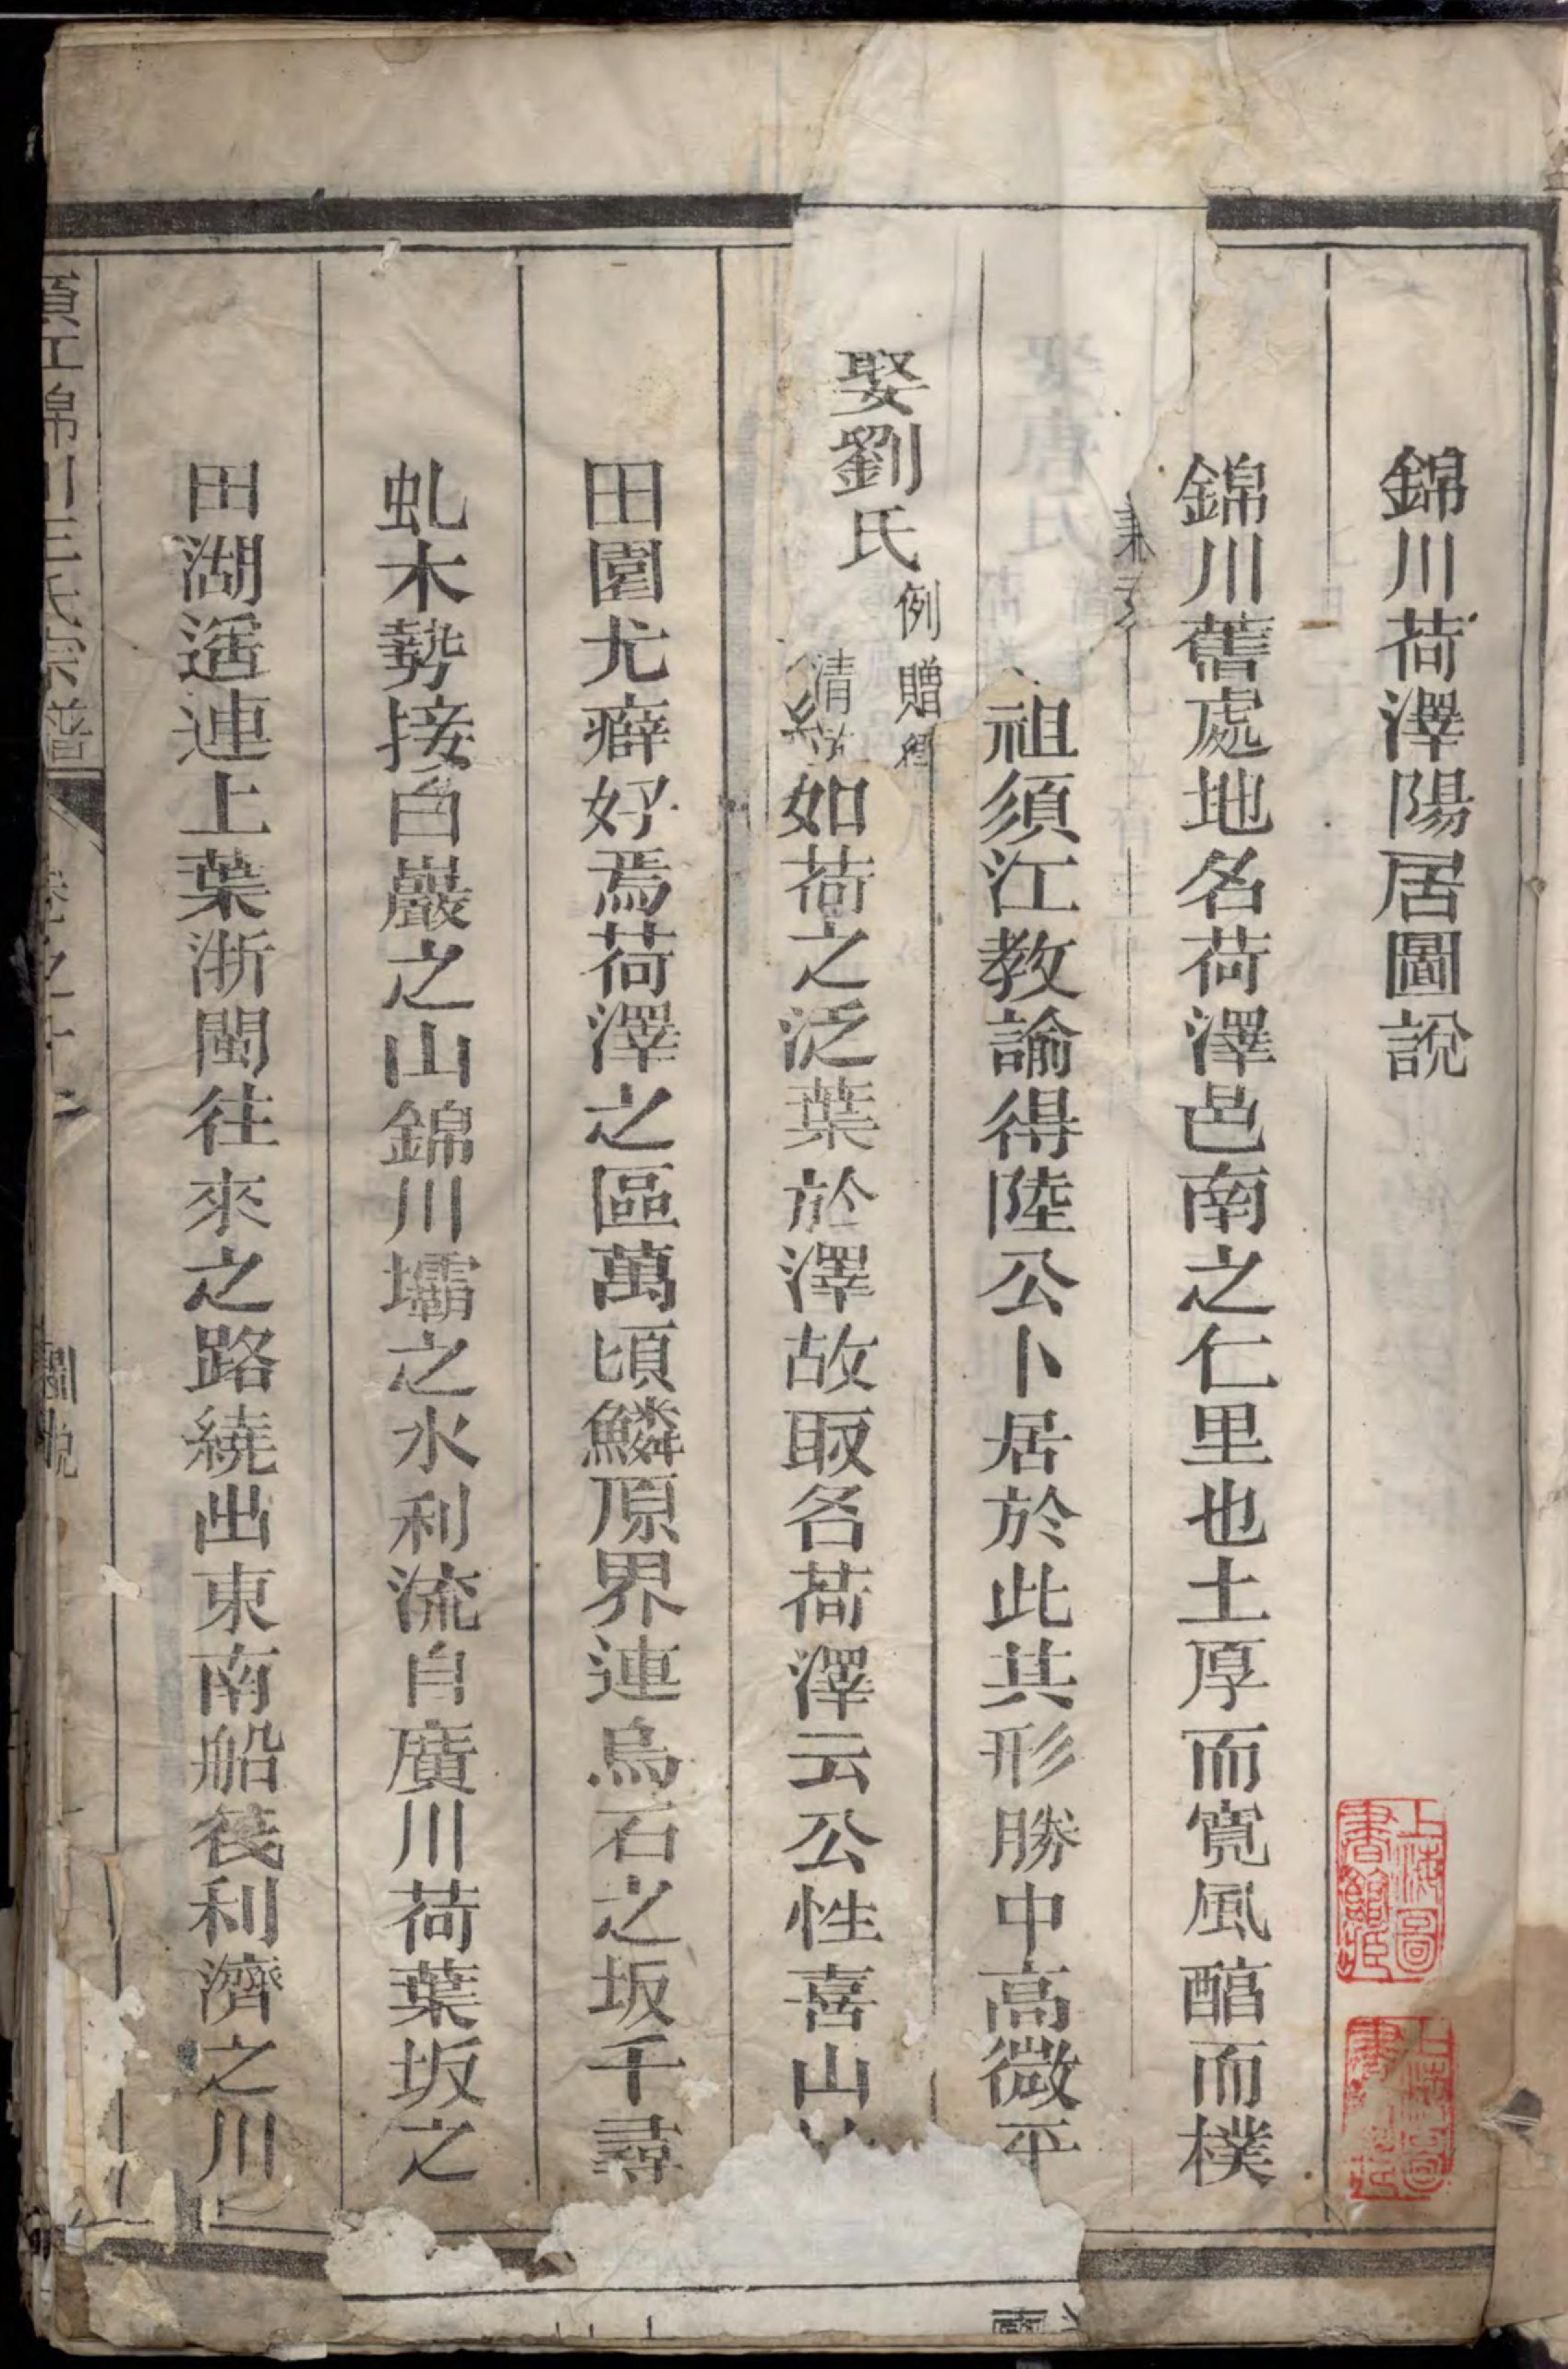 錦川荷澤陽居圖說
錦川舊處地名荷澤邑南之仁里也土厚而寬風醕而樸
祖須江教諭得陸公卜居於此其形勝中高微平
如荷之泛葉於澤故取名荷澤云公性喜山
娶劉氏
例贈
清
田園尤癖好焉荷澤之區萬頃鱗原界連烏石之坂千尋
虬木勢接白巖之山錦川壩之水利流自廣川荷葉坂之
田湖遥連上葉浙閩往來之路繞出東南船筏利濟之川
須江錦川王氏宗譜
圖說
上海圖書館藏